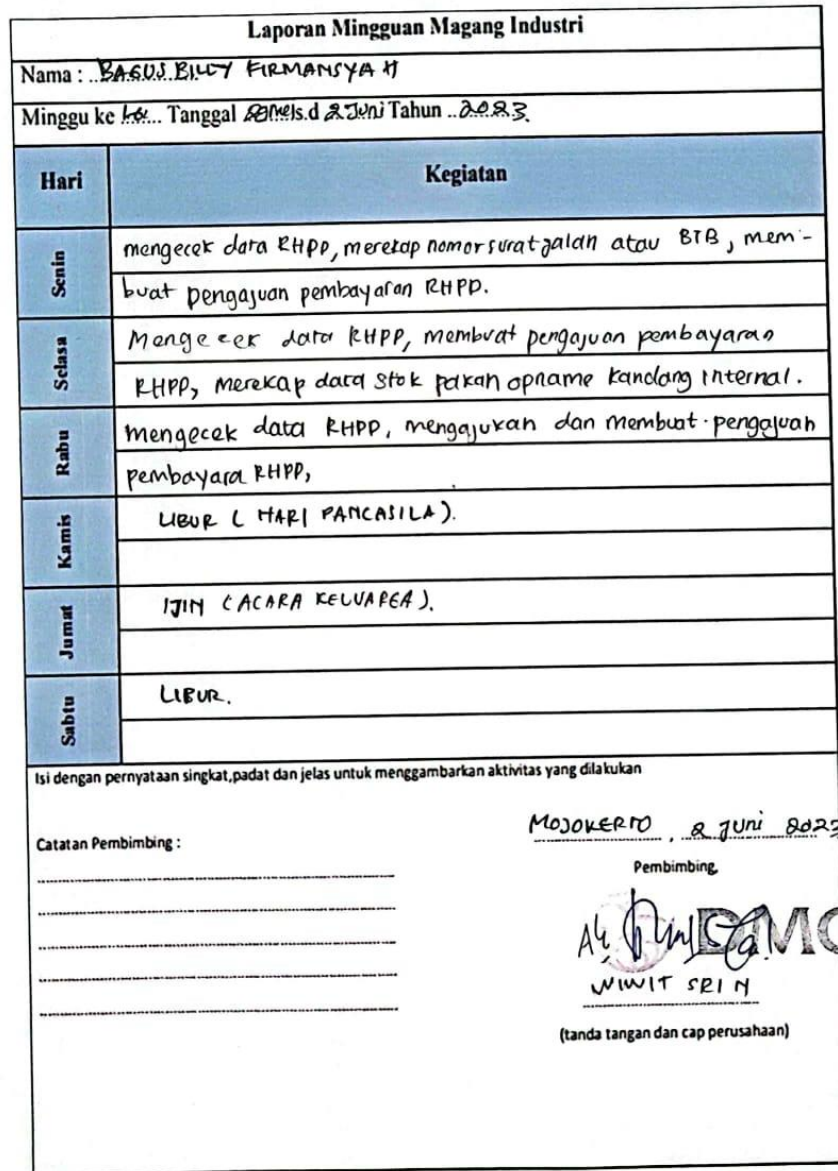 Laporan Mingguan Magang Industri
Nama : BAGUS BILLY FIRMANSYAH
Minggu ke Tanggal s.d 2 Juni Tahun 2023
Hari Kegiatan
Senin
mengecek data RHPP, merekap nomor surat jalan atau BTB, mem-
buat pengajuan pembayaran RHPP.
Selasa
Mengecek data RHPP, membuat pengajuan pembayaran
RHPP, merekap data stok pakan opname kandang internal.
Rabu
mengecek data RHPP, mengajukan dan membuat pengajuan
pembayara RHPP,
Kamis
LIBUR ( HARI PANCASILA).
Jumat
IJIN (ACARA KELUARGA).
Sabtu
LIBUR.
Isi dengan pernyataan singkat,padat dan jelas untuk menggambarkan aktivitas yang dilakukan
MOJOKERTO, 2 Juni 2023
Catatan Pembimbing :
Pembimbing,
WIWIT SRI N
(tanda tangan dan cap perusahaan)